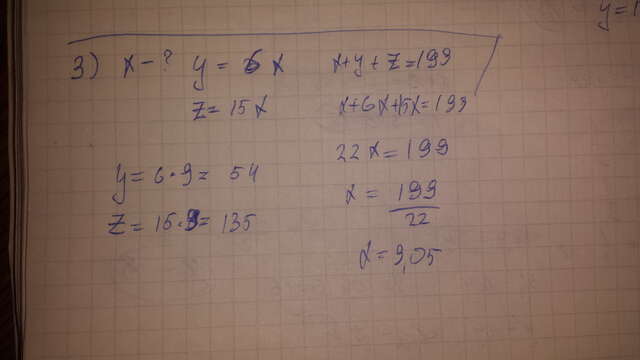 y=1
3) x-? y = 6x x+y+z=199
z=15x x+6x+15x=199
22x=199
y=6·9= 54
x= 199/22
z=15·9= 135
x=9,05